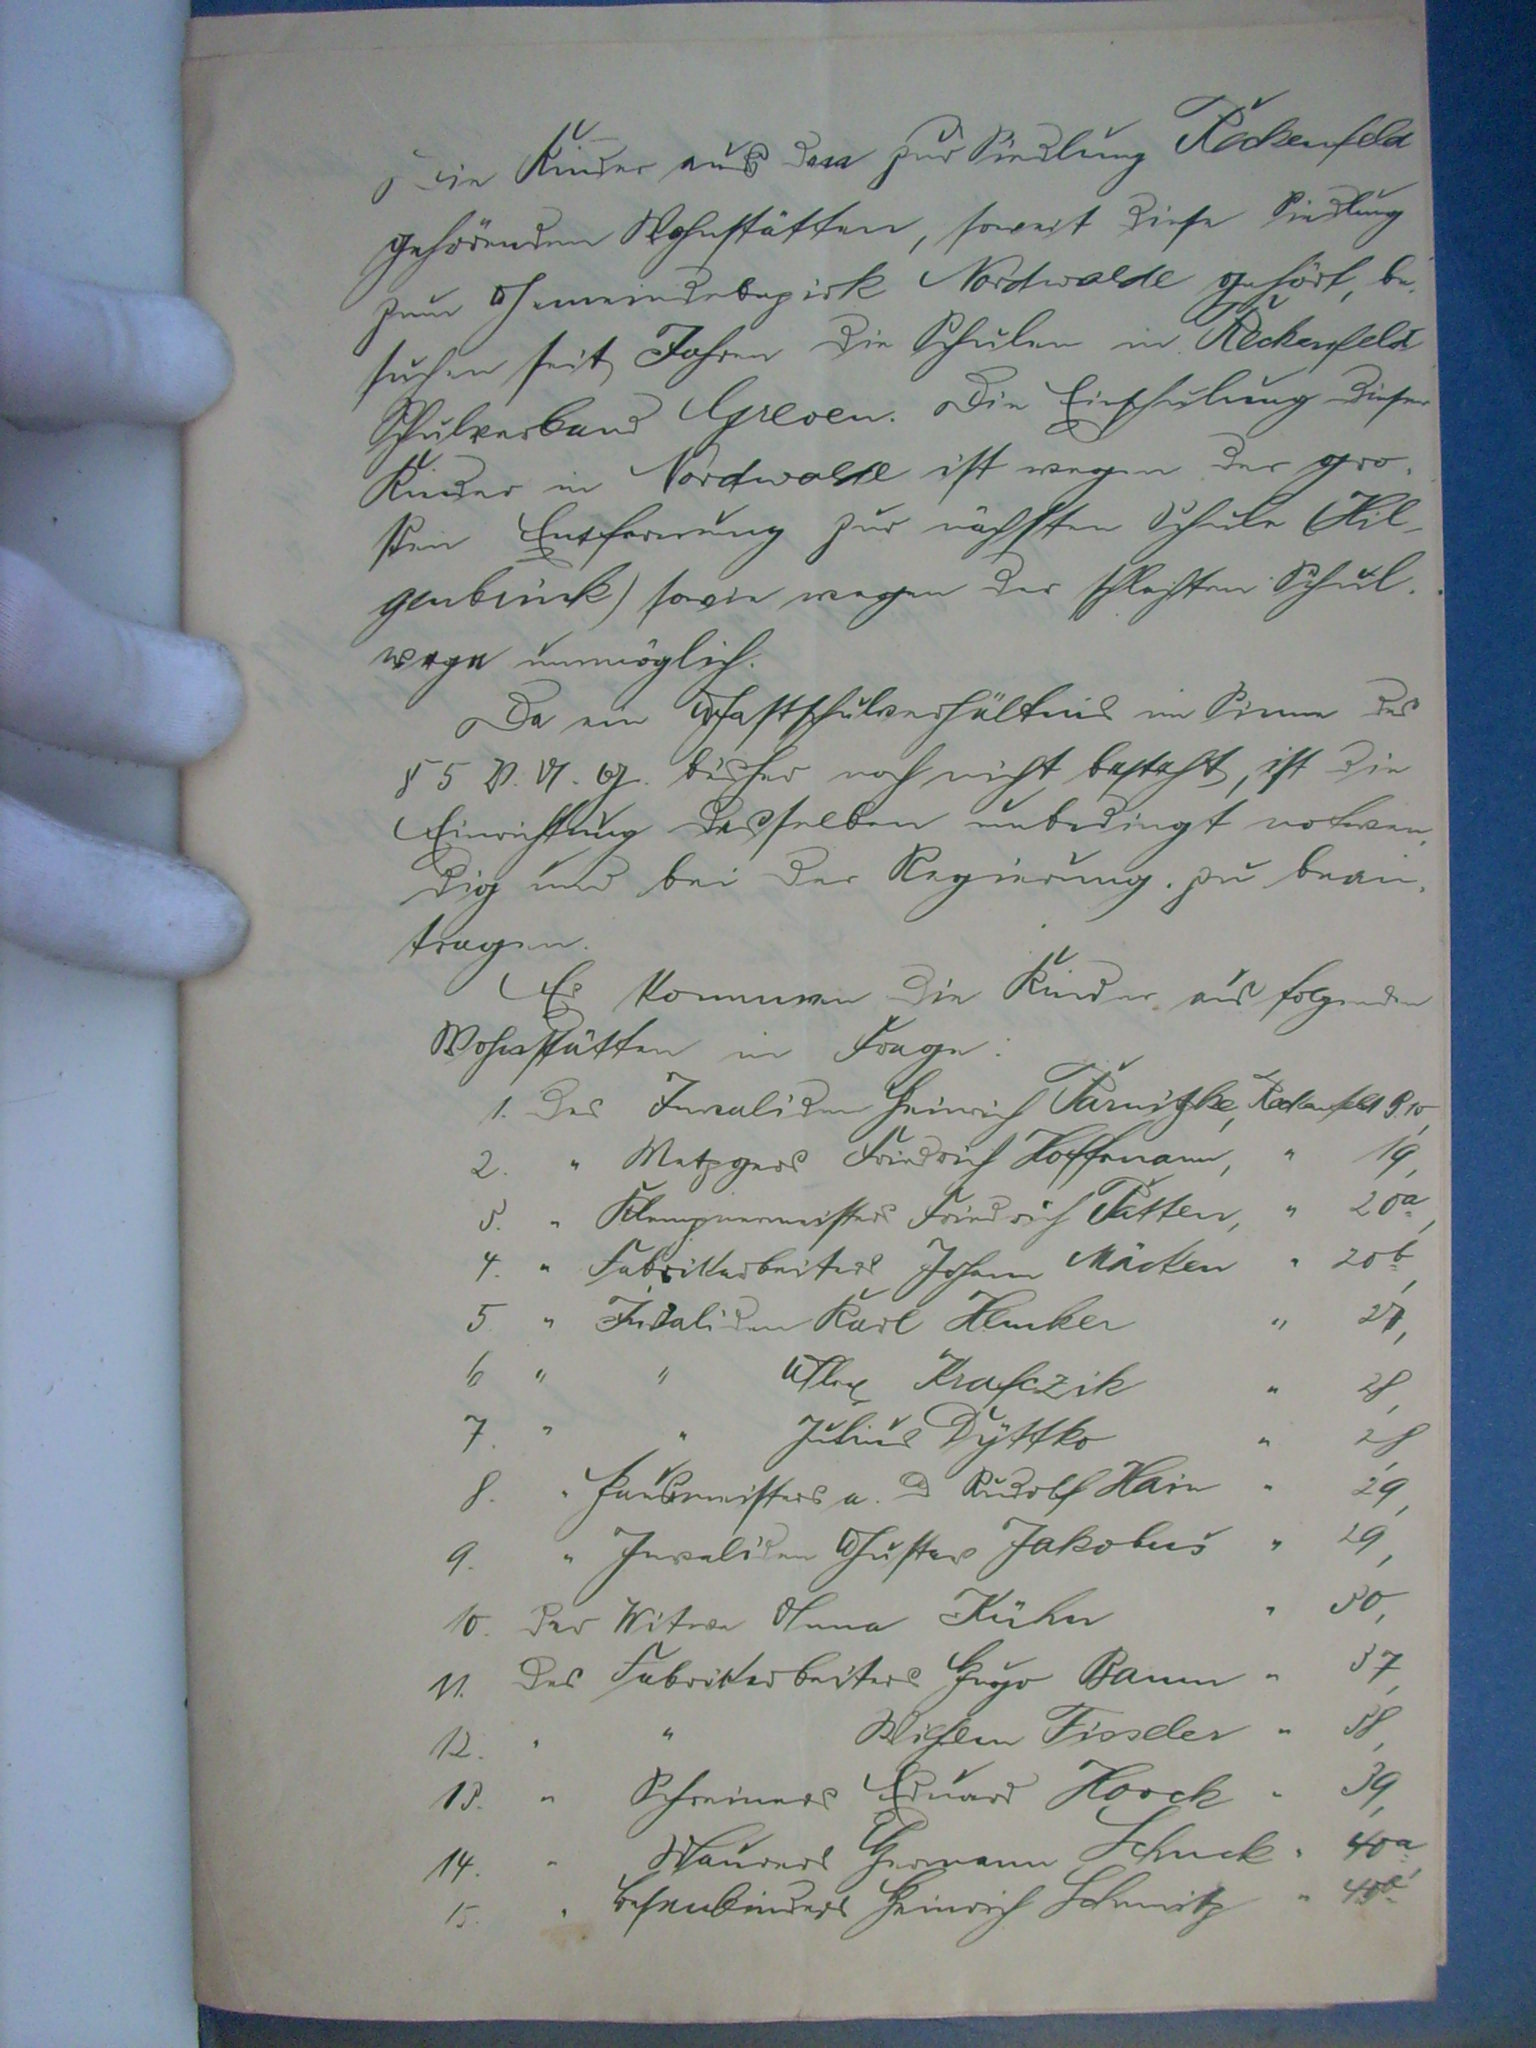 Die Kinder aus den zur Siedlung Reckenfeld
gehörenden Wohnstätten, soweit diese Siedlung
zum Gemeindebezirk Nordwalde gehört, be-
suchen seit Jahren die Schulen in Reckenfeld
Schulverband Greven. Die Einschulung dieser
Kinder in Nordwalde ist wegen der gro-
ßen Entfernung zur nächsten Schule (Hil-
genbrink) sowie wegen der schlechten Schul-
wege unmöglich.
Da ein Gastschulverhältnis im Sinne des
§ 5 V. U. G. bisher noch nicht besteht, ist die
Einrichtung desselben unbedingt notwen-
dig und bei der Regierung zu bean-
tragen.
Es kommen die Kinder aus folgenden
Wohnstätten in Frage:
1. Des Invaliden Heinrich Parnitzke, Reckenfeld
2. " Metzgers Friedrich Hoffmann, " 19,
3. " Klempnermeisters Friedrich Tatten, " 20a,
4. " Fabrikarbeiters Johann Mäcken " 20b,
5 " Invaliden Karl Hemker " 27,
6 " " Alex Krafczik " 28,
7. " " Julius Dyttko " 28
8. " Hausmeisters a. D Rudolf Hain " 29,
9. " Invaliden Gustav Jakobus " 29,
10. der Witwe Anna Kühn " 30,
11. des Fabrikarbeiters Hugo Baum " 37,
12. " " Wilhelm Fisseler " 38,
13. " Schreiners Eduard Hoock " 39,
14. " Maurers Hermann Schuck " 40a,
15. " Besenbinders Heinrich Schmitz " 40b